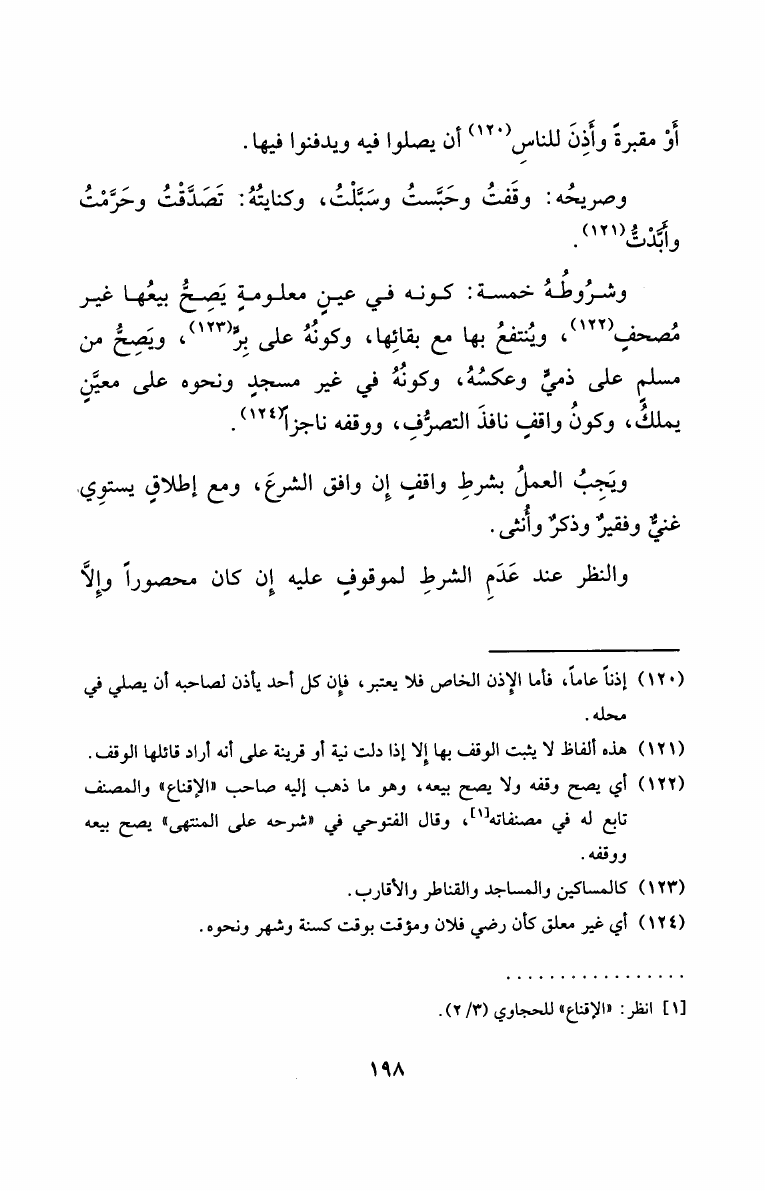 أَوْ مقبرةً وأَذِنَ للناسِ(١٢٠) أن يصلوا فيه ويدفنوا فيها.
وصريحُه: وقَفتُ وحَبَّستُ وسَبَّلْتُ، وكنايتُهُ: تَصَدَّقْتُ وحَرَّمْتُ
وأَبَّدْتُّ(١٢١).
وشُرُوطُهُ خمسة: كونه في عينٍ معلومةٍ يَصِحُّ بيعُها غير
مُصحفٍ(١٢٢)، ويُنتفعُ بها مع بقائِها، وكونُهُ على بِرٍّ(١٢٣)، ويَصِحُّ من
مسلمٍ على ذميٍّ وعكسُهُ، وكونُهُ في غير مسجدٍ ونحوه على معيَّنٍ
يملكُ، وكونُ واقفٍ نافذَ التصرُّفِ، ووقفه ناجزاً(١٢٤).
ويَجِبُ العملُ بشرطِ واقفٍ إِن وافق الشرعَ، ومع إطلاقٍ يستوِي
غنيٌّ وفقيرٌ وذكرٌ وأُنثى.
والنظر عند عَدَمِ الشرطِ لموقوفٍ عليه إِن كان محصوراً وإِلاَّ
(١٢٠) إذناً عاماً، فأما الإِذن الخاص فلا يعتبر، فإن كل أحد يأذن لصاحبه أن يصلي في
محله.
(١٢١) هذه ألفاظ لا يثبت الوقف بها إلا إذا دلت نية أو قرينة على أنه أراد قائلها الوقف.
(١٢٢) أي يصح وقفه ولا يصح بيعه، وهو ما ذهب إليه صاحب «الإقناع» والمصنف
تابع له في مصنفاته[١]، وقال الفتوحي في «شرحه على المنتهى» يصح بيعه
ووقفه.
(١٢٣) كالمساكين والمساجد والقناطر والأقارب.
(١٢٤) أي غير معلق كأن رضي فلان ومؤقت بوقت كسنة وشهر ونحوه.
. . . . . . . . . . . . . . . . .
[١] انظر: «الإقناع» للحجاوي (٢/٣).
١٩٨